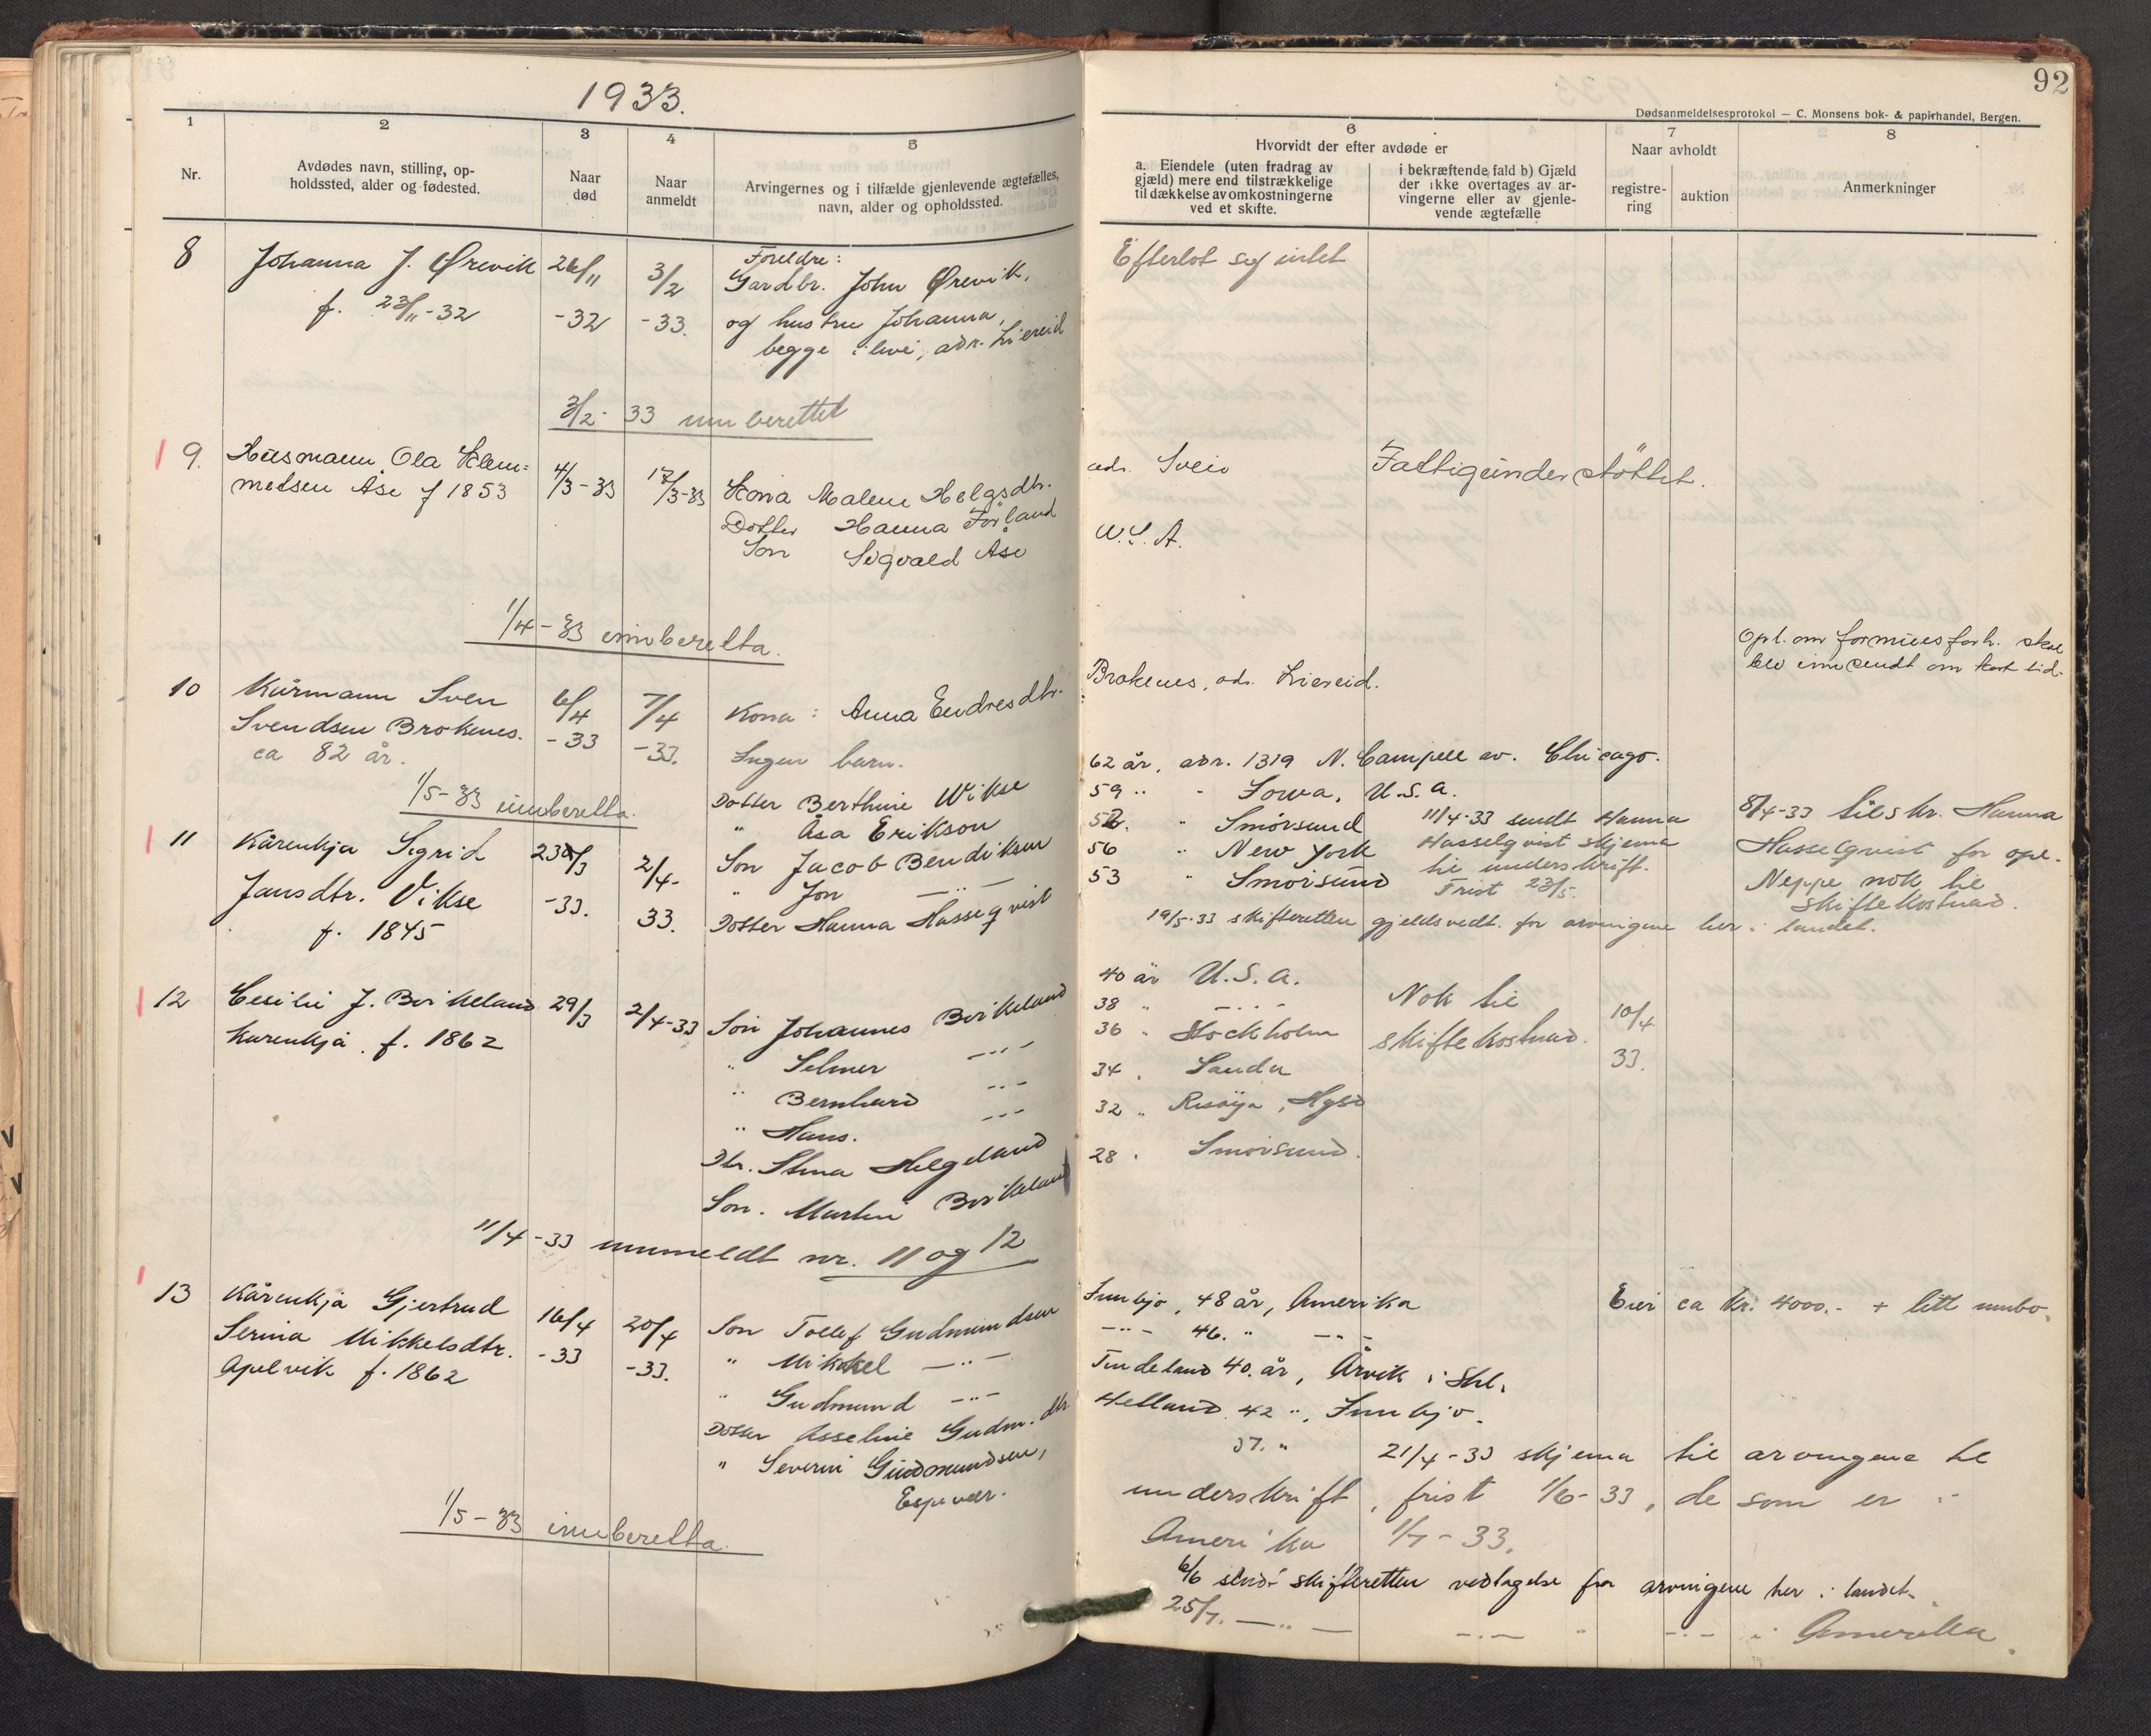 1933.
92
Dødsanmeldelsesprotokol — C. Monsens bok- & papirhandel, Bergen.
1
2
3
4
5
6
7
8
Nr.
Avdødes navn, stilling, op-
holdssted, alder og fødested.
Naar
død
Naar
anmeldt
Arvingernes og i tilfælde gjenlevende ægtefælles,
navn, alder og opholdssted.
Hvorvidt der efter avdøde er
a. Eiendele (uten fradrag av
gjæld) mere end tilstrækkelige
til dækkelse av omkostningerne
ved et skifte.
i bekræftende fald b) Gjæld
der ikke overtages av ar-
vingerne eller av gjenle-
vende ægtefælle
Naar avholdt
registre-
ring
auktion
Anmerkninger
8
Johanna J. Ørevik
f. 23/11-32
26/11
-32
3/2
-33.
Foreldre:
Gardbr. John Ørevik,
og hustru Johanna,
begge i live, adr. Liereid
Efterlot sej intet
3/2-33 innberettet
9.
Husmann Ola Klem-
metsen Åse f 1853
4/3-33
17/3-33
Kona Malene Helgsdtr.
Dotter Hanna Førland
Son Sigvald Åse
adr. Sveio
U.S.A.
Fattigunderstöttet.
1/4-33 innberetta.
10
Kårmann Sven
Svendsen Brokenes.
ca 82 år.
6/4
-33
7/4
-33.
Kona: Anna Endresdtr.
Ingen barn.
Brokenes, adr. Liereid.
Opl. om formuesforh. skal
bli innsendt om kort tid.
1/5-33 innberetta.
11
Kårenkja Sigrid
Jansdtr. Vikse
f. 1845
23/3
-33.
2/4-
33.
Dotter Berthine Wikse
" Åsa Erikson
Son Jacob Bendiksen
" Jon —"—
Dotter Hanna Hasselqvist
62 år, adr. 1319 N. Campell av. Chicago.
59 " - Iowa, U.S.A.
52. " Smörsund
56 " New York
53 " Smörsund
11/4-33 sendt Hanna
Hasselqvist skjema
til underskrift.
Frist 23/5.
19/5-33 skifteretten gjeldsvedt. for arvingene her i landet.
8/4-33 tilskr. Hanna
Hasselqvist for opl.
Neppe nok til
skiftekostnad.
12
Cecilie J. Birkeland
kårenkja. f. 1862
29/3
2/4-33
Son Johannes Birkeland
" Selmer —"—
" Bernhard —"—
" Hans. —"—
Dtr. Stina Helgeland
Son. Martin Birkeland
40 år U.S.A.
38 " —"—
36 " Stockholm
34 . Sanda
32 " Risöya, Hgsd
28 . Smörsund.
Nok til
skiftekostnad.
10/4
33.
11/4-33 innmeldt nr. 11 og 12
13
Kårenkja Gjertrud
Serina Mikkelsdtr.
Apelvik f. 1862
16/4
-33
20/4
-33.
Son Tollef Gudmundsen
" Mikkel —"—
" Gudmund —"—
Dotter Asseline Gudm.dtr.
" Severin Gudmundsen,
Espevær.
Innbjo, 48 år, Amerika
—"— 46. " —"—
Tindeland 40. år, Årvik i Skl.
Helland 42 ", Innbjo.
37. "
Eier ca kr. 4000.- + litt innbo.
21/4-33 skjema til arvingene til
underskrift, frist 1/6-33, de som er i
Amerika 1/7-33.
6/6 sendt skifteretten vedtagelse fra arvingene her i landet.
25/7. —"— —"— " —"— i Amerika.
1/5-33 innberetta